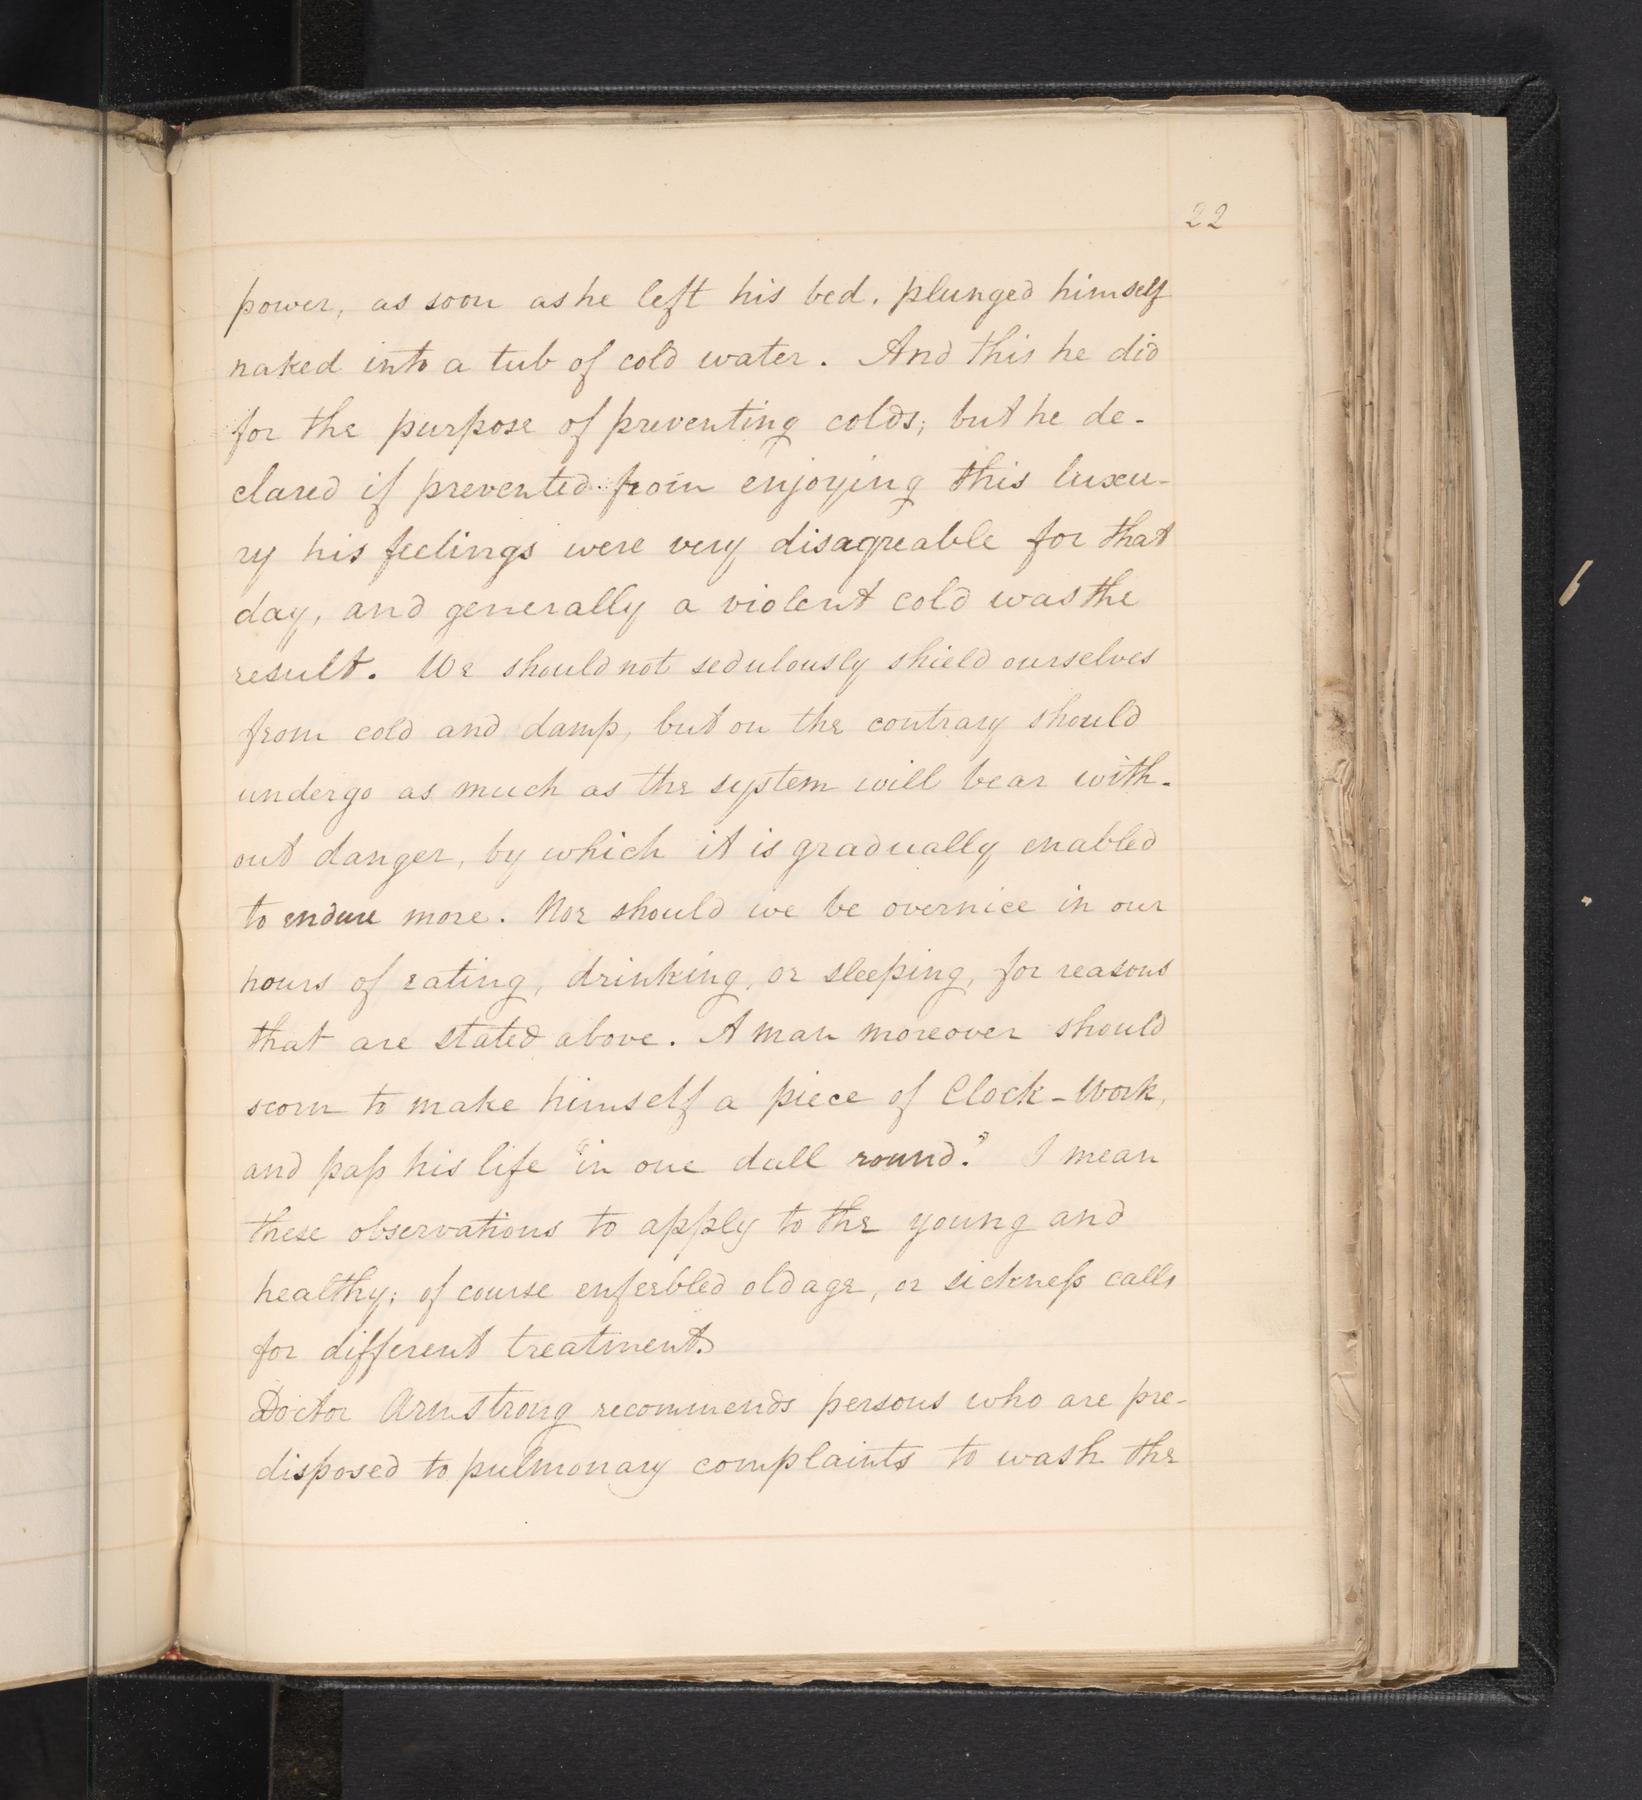 22
power, as soon as he left his bed, plunged himself
naked into a tub of cold water. And this he did
for the purpose of preventing colds; but he de-
clared if prevented from enjoying this luxu-
ry his feelings were very disagreable for that
day, and generally a violent cold was the
result. We should not sedulously shield ourselves
from cold and damp, but on the contrary should
undergo as much as the system will bear with-
out danger, by which it is gradually enabled
to endure more. Nor should we be overnice in our
hours of eating, drinking, or sleeping, for reasons
that are stated above. A man moreover should
scorn to make himself a piece of Clock-Work,
and paſs his life "in one dull round." I mean
these observations to apply to the young and
healthy; of course enfeebled old age, or sickneſs calls
for different treatment.
Doctor Armstrong recommends persons who are pre-
disposed to pulmonary complaints to wash the